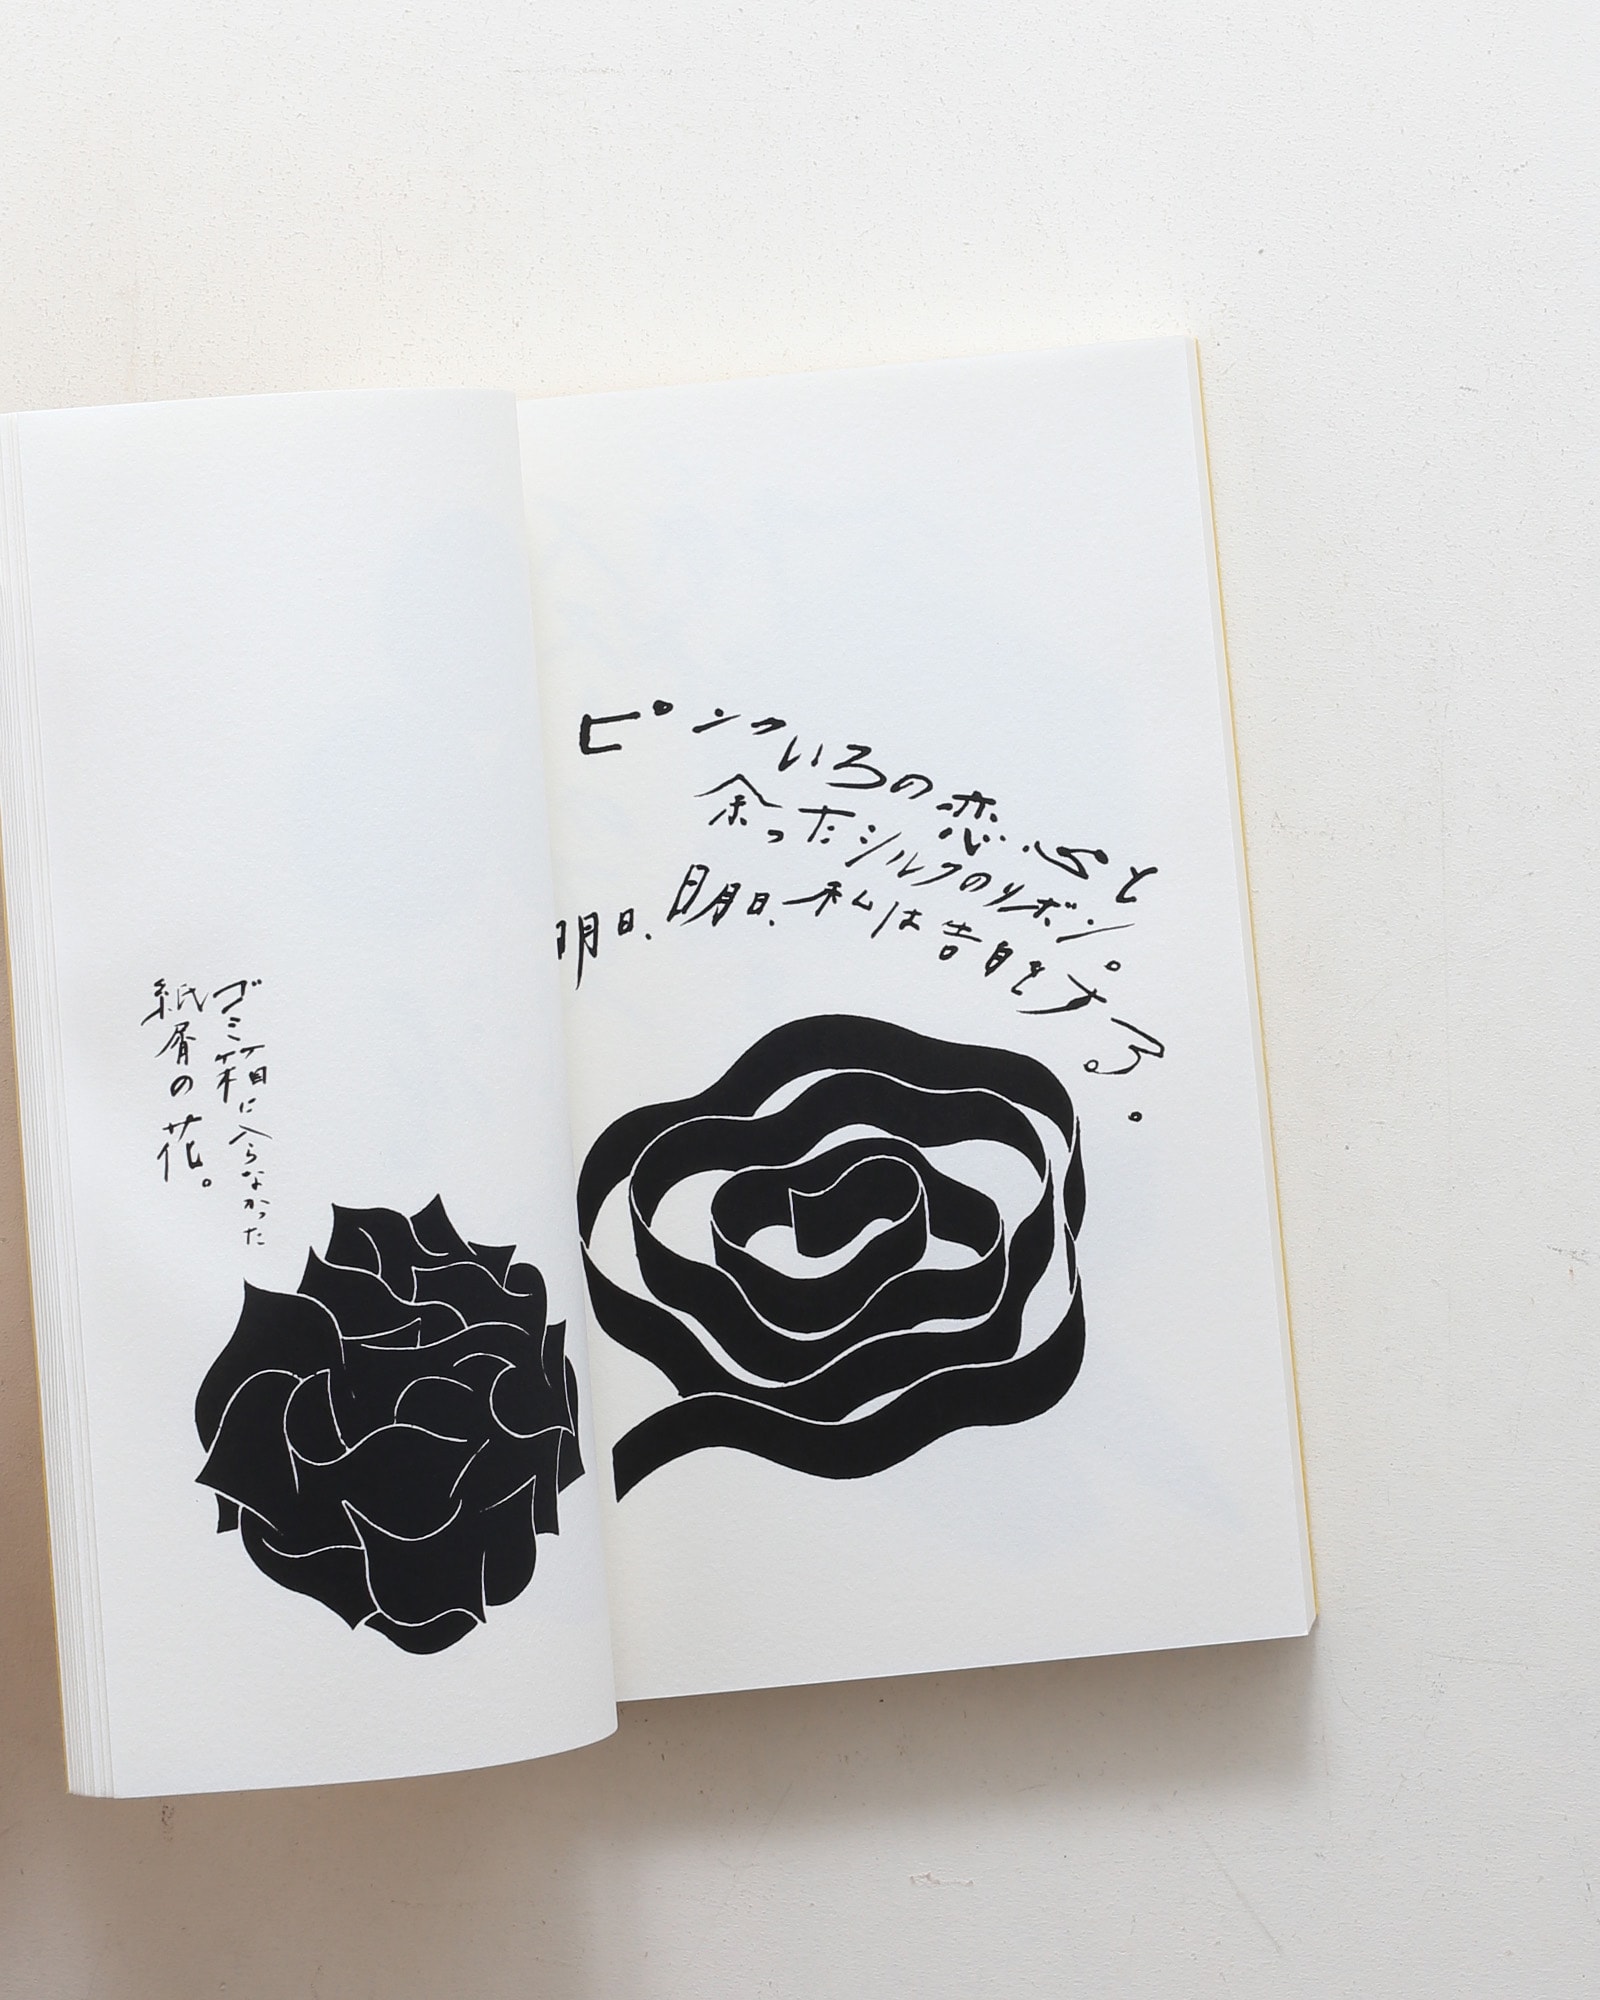 ピンクいろの恋心と
余ったシルクのリボン。
明日、明日、私は告白をする。
ゴミ箱に入らなかった
紙屑の花。